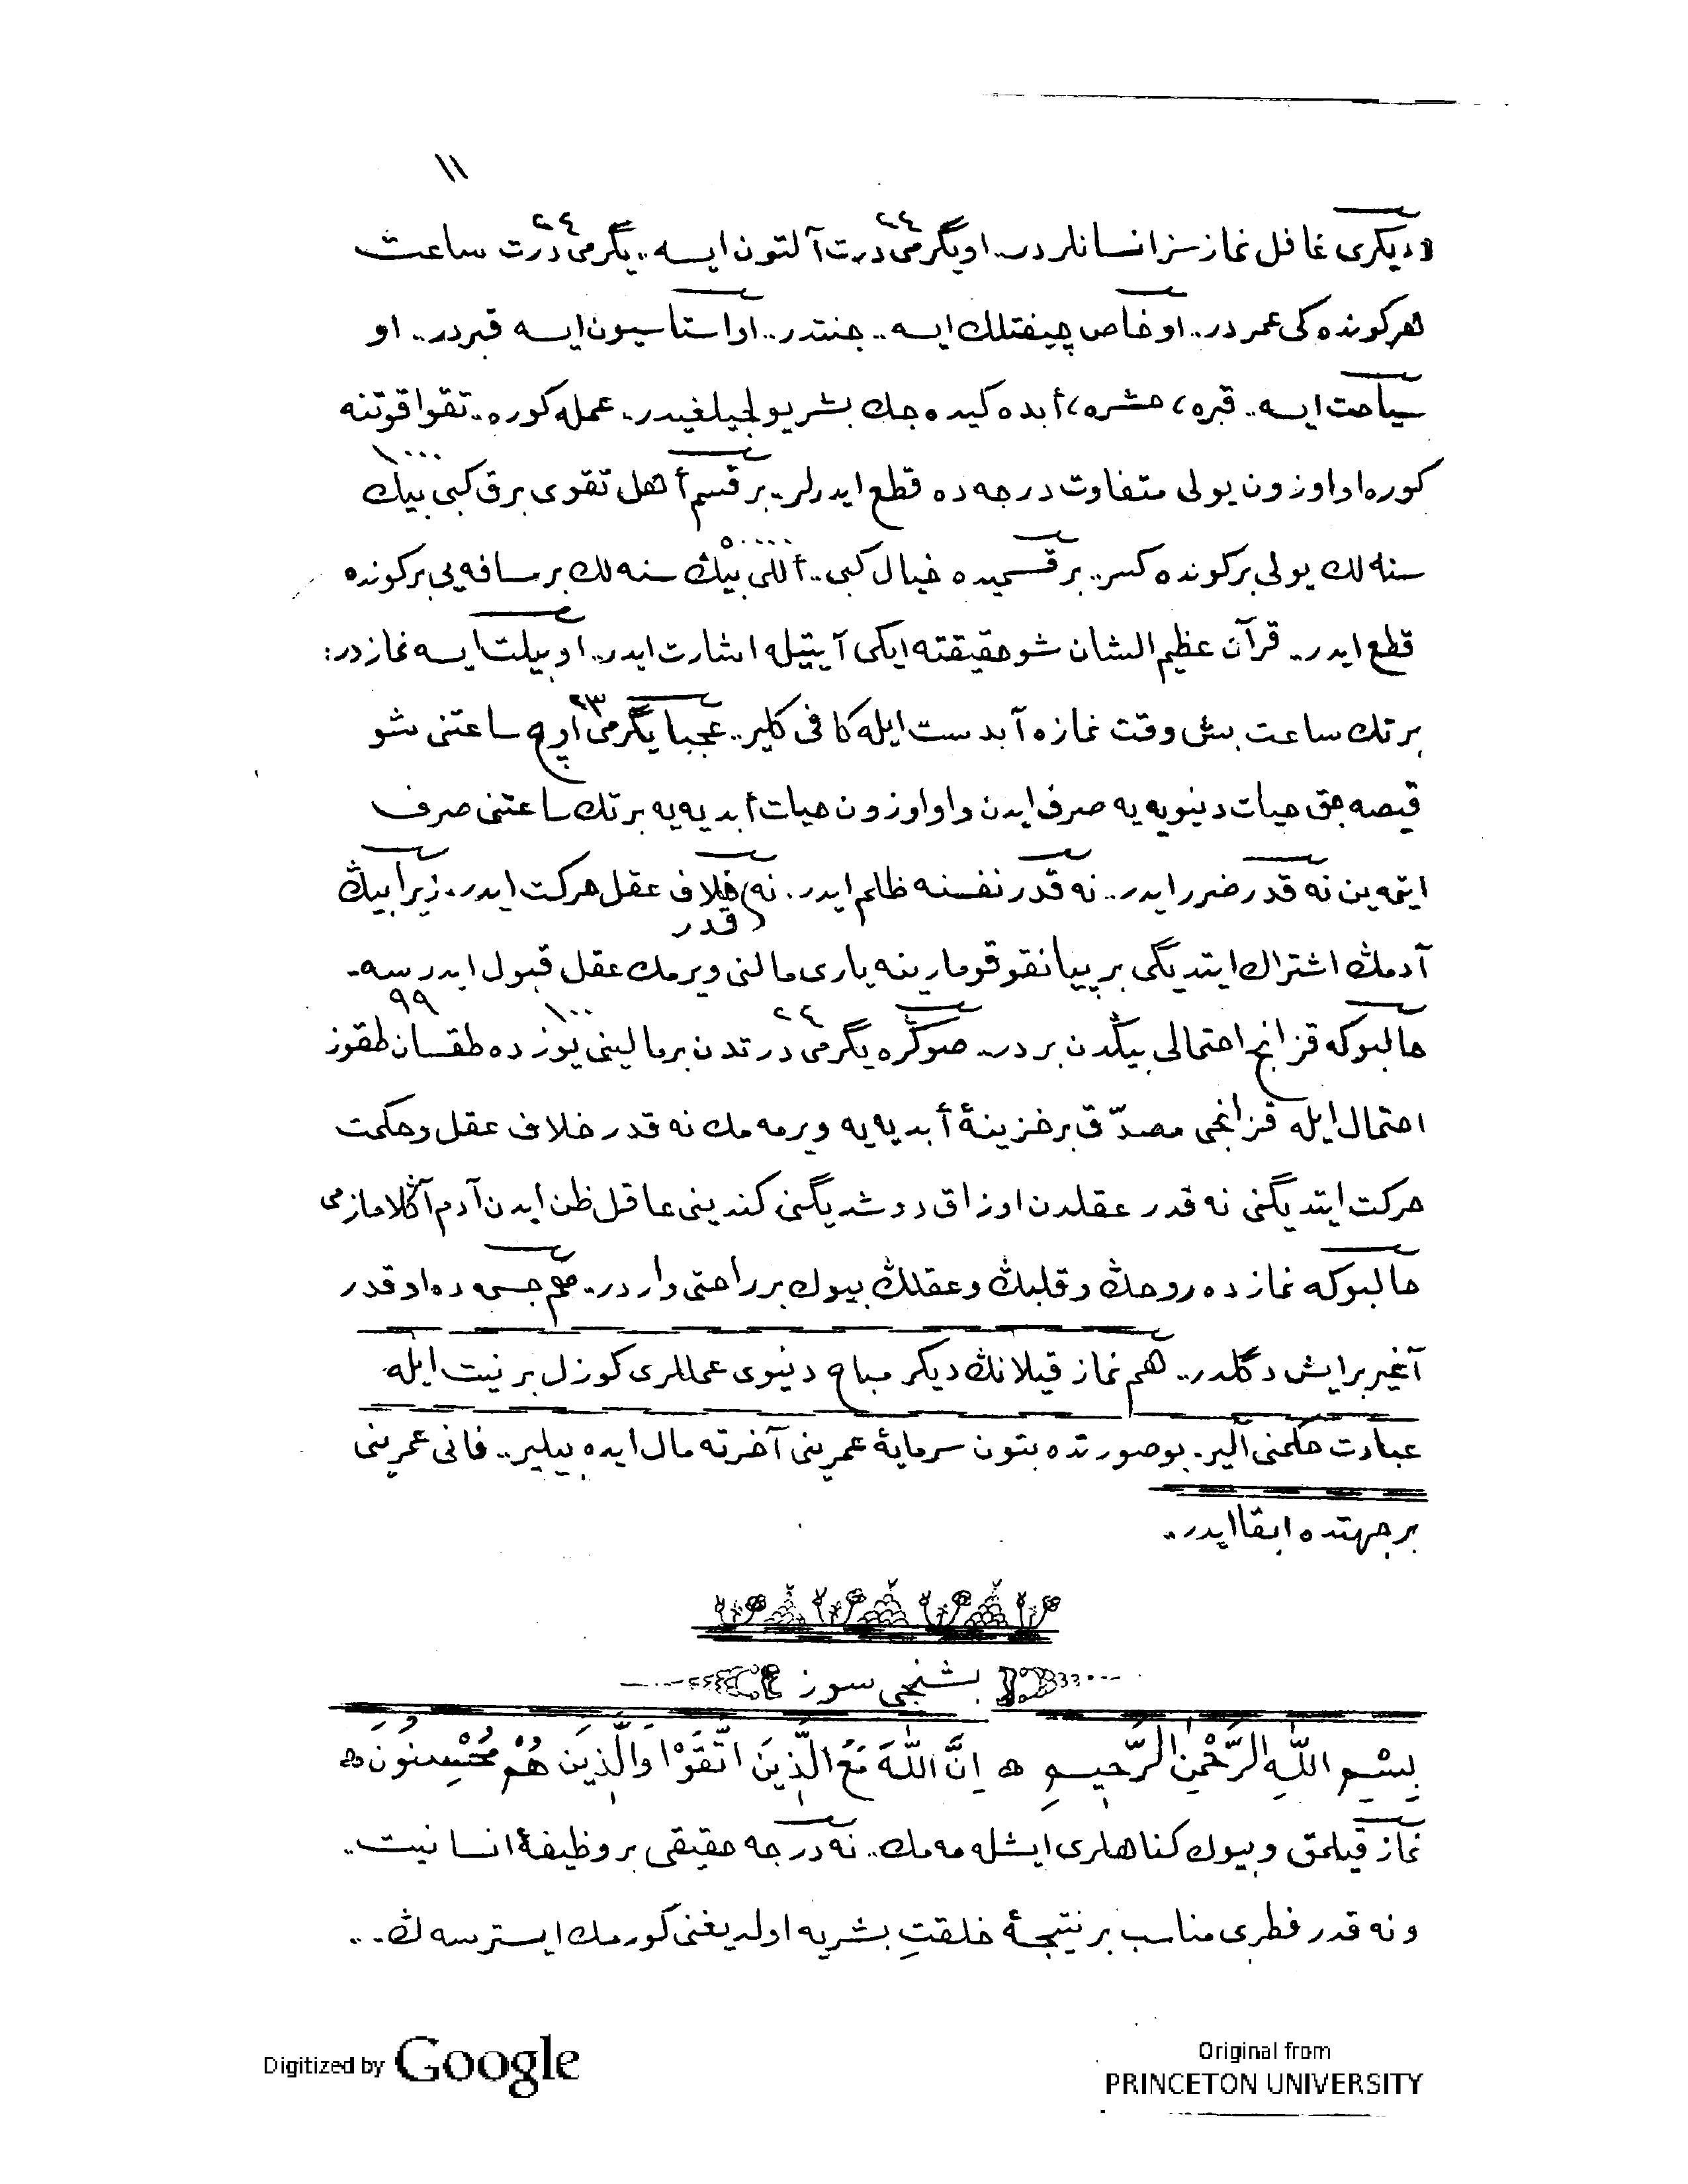 ١١
و ديكرى غافل نمازسز انسانلردر.. او يگرمى درت آلتون ايسه.. يگرمى درت ساعت
٢٤ ٢٤
هر كونده كى عمردر.. او خاص چيفتلك ايسه.. جنتدر.. او استاسيون ايسه قبردر.. او
سياحت ايسه.. قبره، حشره، أبده كيده جك بشر يولجيلغيدر. عمله كوره.. تقوا قوتنه
كوره او اوزون يولى متفاوت درجه ده قطع ايدرلر.. بر قسم أهل تقوى برق كبى بيك
١٠٠٠
سنه لك يولى بر كونده كسر.. بر قسميده خيال كبى.. أللى بيڭ سنه لك بر مسافه يى بر كونده
٥٠٠٠٠
قطع ايدر.. قرآن عظيم الشان شو حقيقته ايكى آيتيله اشارت ايدر.. او بيلت ايسه نمازدر:
بر تك ساعت بش وقت نمازه آبدست ايله كافى كلير.. عجبا يگرمى اوچ ساعتنى شو
٢٣
قيصه جق حيات دنيويه يه صرف ايدن و او اوزون حيات أبديه يه بر تك ساعتنى صرف
ايتمه ين نه قدر ضرر ايدر.. نه قدر نفسنه ظلم ايدر. نه قدر خلاف عقل حركت ايدر. زيرا بيڭ
آدمڭ اشتراك ايتديگى بر پيانقو قومارينه يارى مالنى ويرمك عقل قبول ايدرسه..
حالبوكه قزانج احتمالى بيڭدن بردر.. صوڭره يگرمى درتدن بر مالينى يوزده طقسان طقوز
٢٤ ١٠٠ ٩٩
احتمال ايله قزانجى مصدّق بر خزينهٔ أبديه يه ويرمه مك نه قدر خلاف عقل و حكمت
حركت ايتديگنى نه قدر عقلدن اوزاق دوشديگنى كندينى عاقل ظن ايدن آدم آڭلامازمى
حالبوكه نمازده روحڭ و قلبڭ و عقلڭ بيوك بر راحتى واردر.. هم جسمه ده او قدر
آغير بر ايش دگلدر.. هم نماز قيلانڭ ديكر مباح دنيوى عمللرى كوزل بر نيت ايله
عبادت حكمنى آلير. بو صورتده بتون سرمايهٔ عمرينى آخرته مال ايده بيلير.. فانى عمرينى
بر جهتده ابقا ايدر..
بشنجى سوز
بِسْمِ اللّٰهِ الرَّحْمٰنِ الرَّحِيمِ ۞ اِنَّ اللّٰهَ مَعَ الَّذِينَ اتَّقَوْا وَالَّذِينَ هُمْ مُحْسِنُونَ ۞
نماز قيلمق و بيوك كناهلرى ايشله مه مك.. نه درجه حقيقى بر وظيفهٔ انسانيت..
و نه قدر فطرى مناسب بر نتيجهٔ خلقتِ بشريه اولديغنى كورمك ايسترسه ڭ...
Digitized by Google
Original from
PRINCETON UNIVERSITY